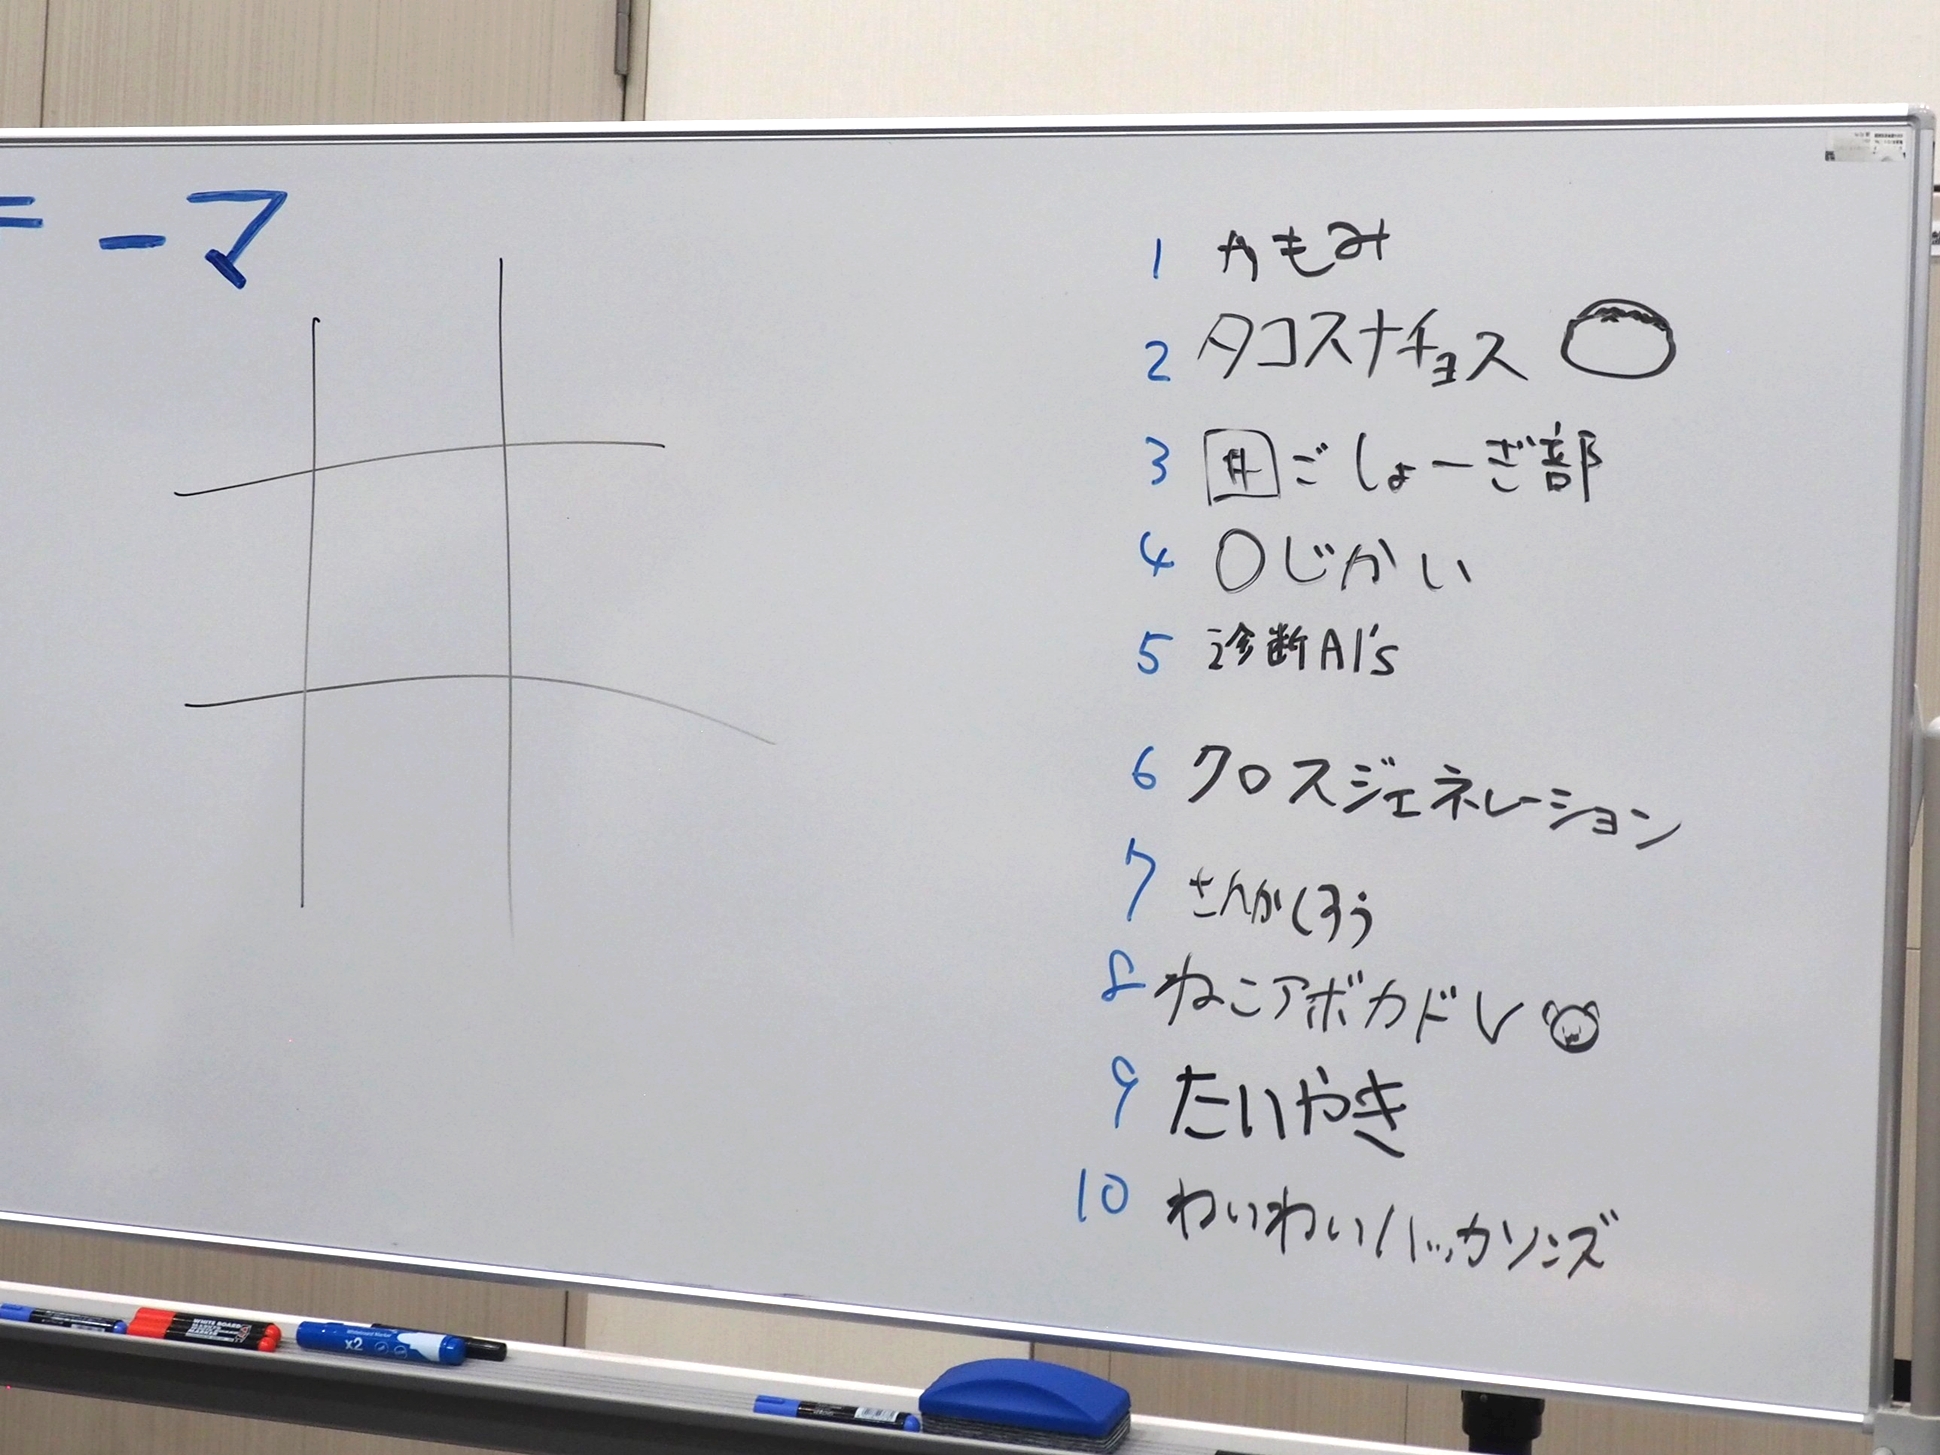 テーマ
1 かもみ
2 タコスナチョス
3 囲ごしょーぎ部
4 〇じかい
5 診断AI's
6 クロスジェネレーション
7 さんかしろう
8 ねこアボカドレ
9 たいやき
10 わいわいハッカソンズ
WHITE BOARD MARKER
Whiteboard Marker
x2